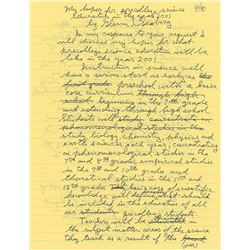 My hopes for precollege science 9/80
Education in the year 2001
by Glenn T. Seaborg
In my response to your request I
will discuss my hopes for what
precollege science education will be
like in the year 2001.
Instruction in science will
have a serious start as early as the
first grade preschool with a basic
core curriculum through high
school beginning in the 7th grade
and extending through high school.
Students will study
phenomenological studies in the
study biology, chemistry, physics and
earth sciences each year, concentrating
on phenomenological studies in the
7th and 8th grades, empirical studies
in the 9th and 10th grades and
theoretical studies in the 11th and
12th grades. The basic core of scientific
knowledge will be
included in the education of all
our students precollege students.
Teachers will be
the subject matter areas of the science
they teach as a result of the
(over)